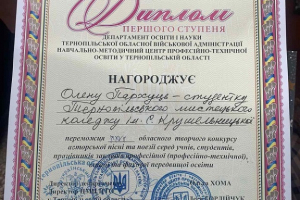 Диплом
ПЕРШОГО СТУПЕНЯ
ДЕПАРТАМЕНТ ОСВІТИ І НАУКИ
ТЕРНОПІЛЬСЬКОЇ ОБЛАСНОЇ ВІЙСЬКОВОЇ АДМІНІСТРАЦІЇ
НАВЧАЛЬНО-МЕТОДИЧНИЙ ЦЕНТР ПРОФЕСІЙНО-ТЕХНІЧНОЇ
ОСВІТИ У ТЕРНОПІЛЬСЬКІЙ ОБЛАСТІ
НАГОРОДЖУЄ
Олену студентку
Тернопільського мистецького
коледжу ім. С. Крушельницької
переможця обласного творчого конкурсу
авторської пісні та поезії серед учнів, студентів,
працівників закладів професійної (професійно-технічної),
фахової передвищої освіти
Директор
Ольга ХОМА
Директор